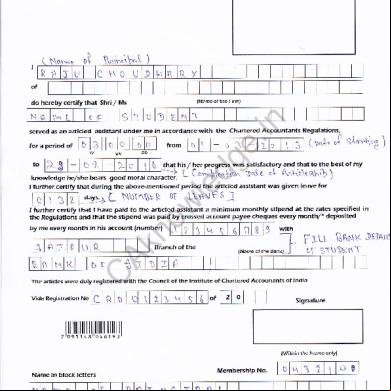 (Name of Principal)
I RAJU CHOUDHARY
of
do hereby certify that Shri / Ms (Name of the Firm)
NAME OF STUDENT
served as an articled assistant under me in accordance with the Chartered Accountants Regulations,
for a period of 03 00 00 from 01- 2013 (Date of Starting)
to 28-02-2016 that his / her progress was satisfactory and that to the best of my
knowledge he/she bears good moral character. (Completion Date of Articleship)
I further certify that during the above-mentioned period the articled assistant was given leave for
0132 days. [NUMBER OF LEAVES]
I further certify that I have paid to the articled assistant a minimum monthly stipend at the rates specified in
the Regulations and that the stipend was paid by crossed account payee cheques every monthly* deposited
by me every month in his account (number) 123456789 with
JAIPUR Branch of the (Name of the Bank) FILL BANK DETAILS OF STUDENT
BANK OF INDIA
The articles were duly registered with the Council of the Institute of Chartered Accountants of India
Vide Registration No CRO0123456 of 20 Signature
(Within the frame only)
Membership No. 043210
Name in block letters